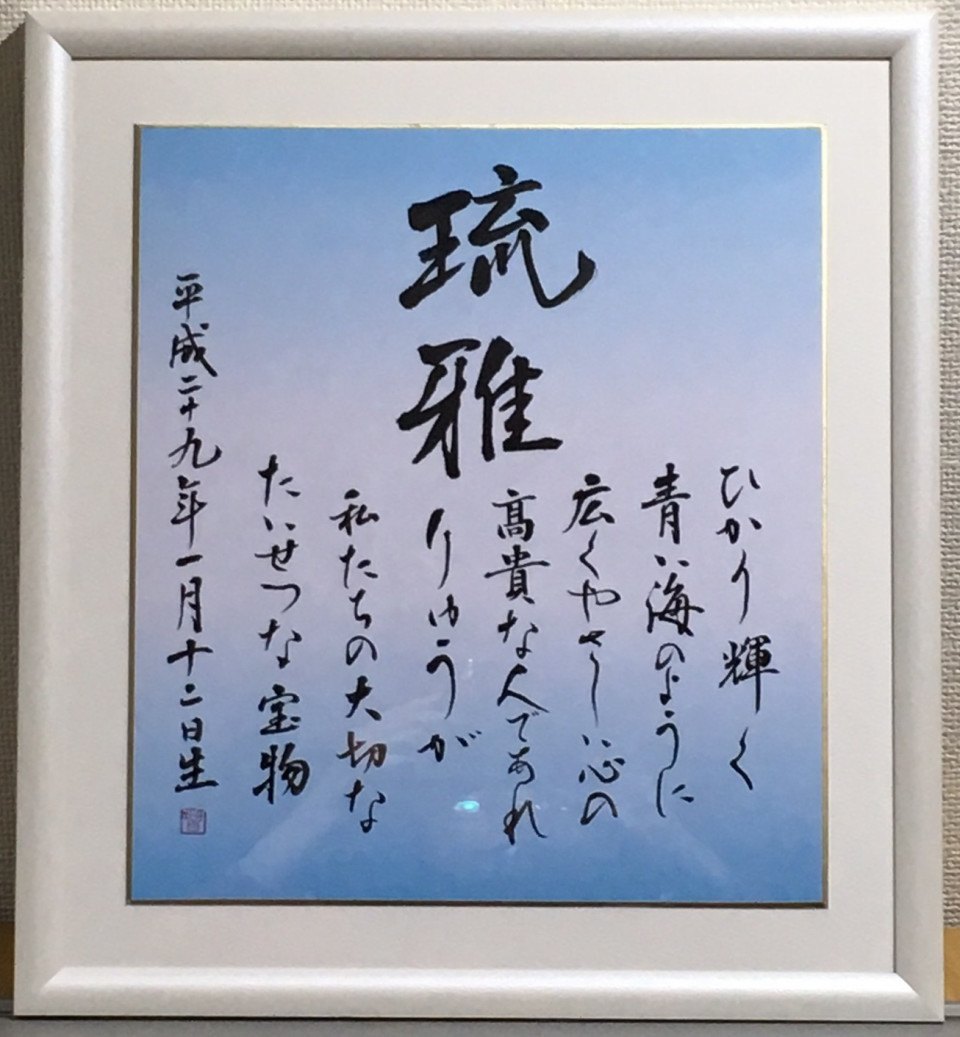 琉雅
ひかり輝く
青い海のように
広くやさしい心の
高貴な人であれ
りゅうが
私たちの大切な
たいせつな宝物
平成二十九年一月十二日生